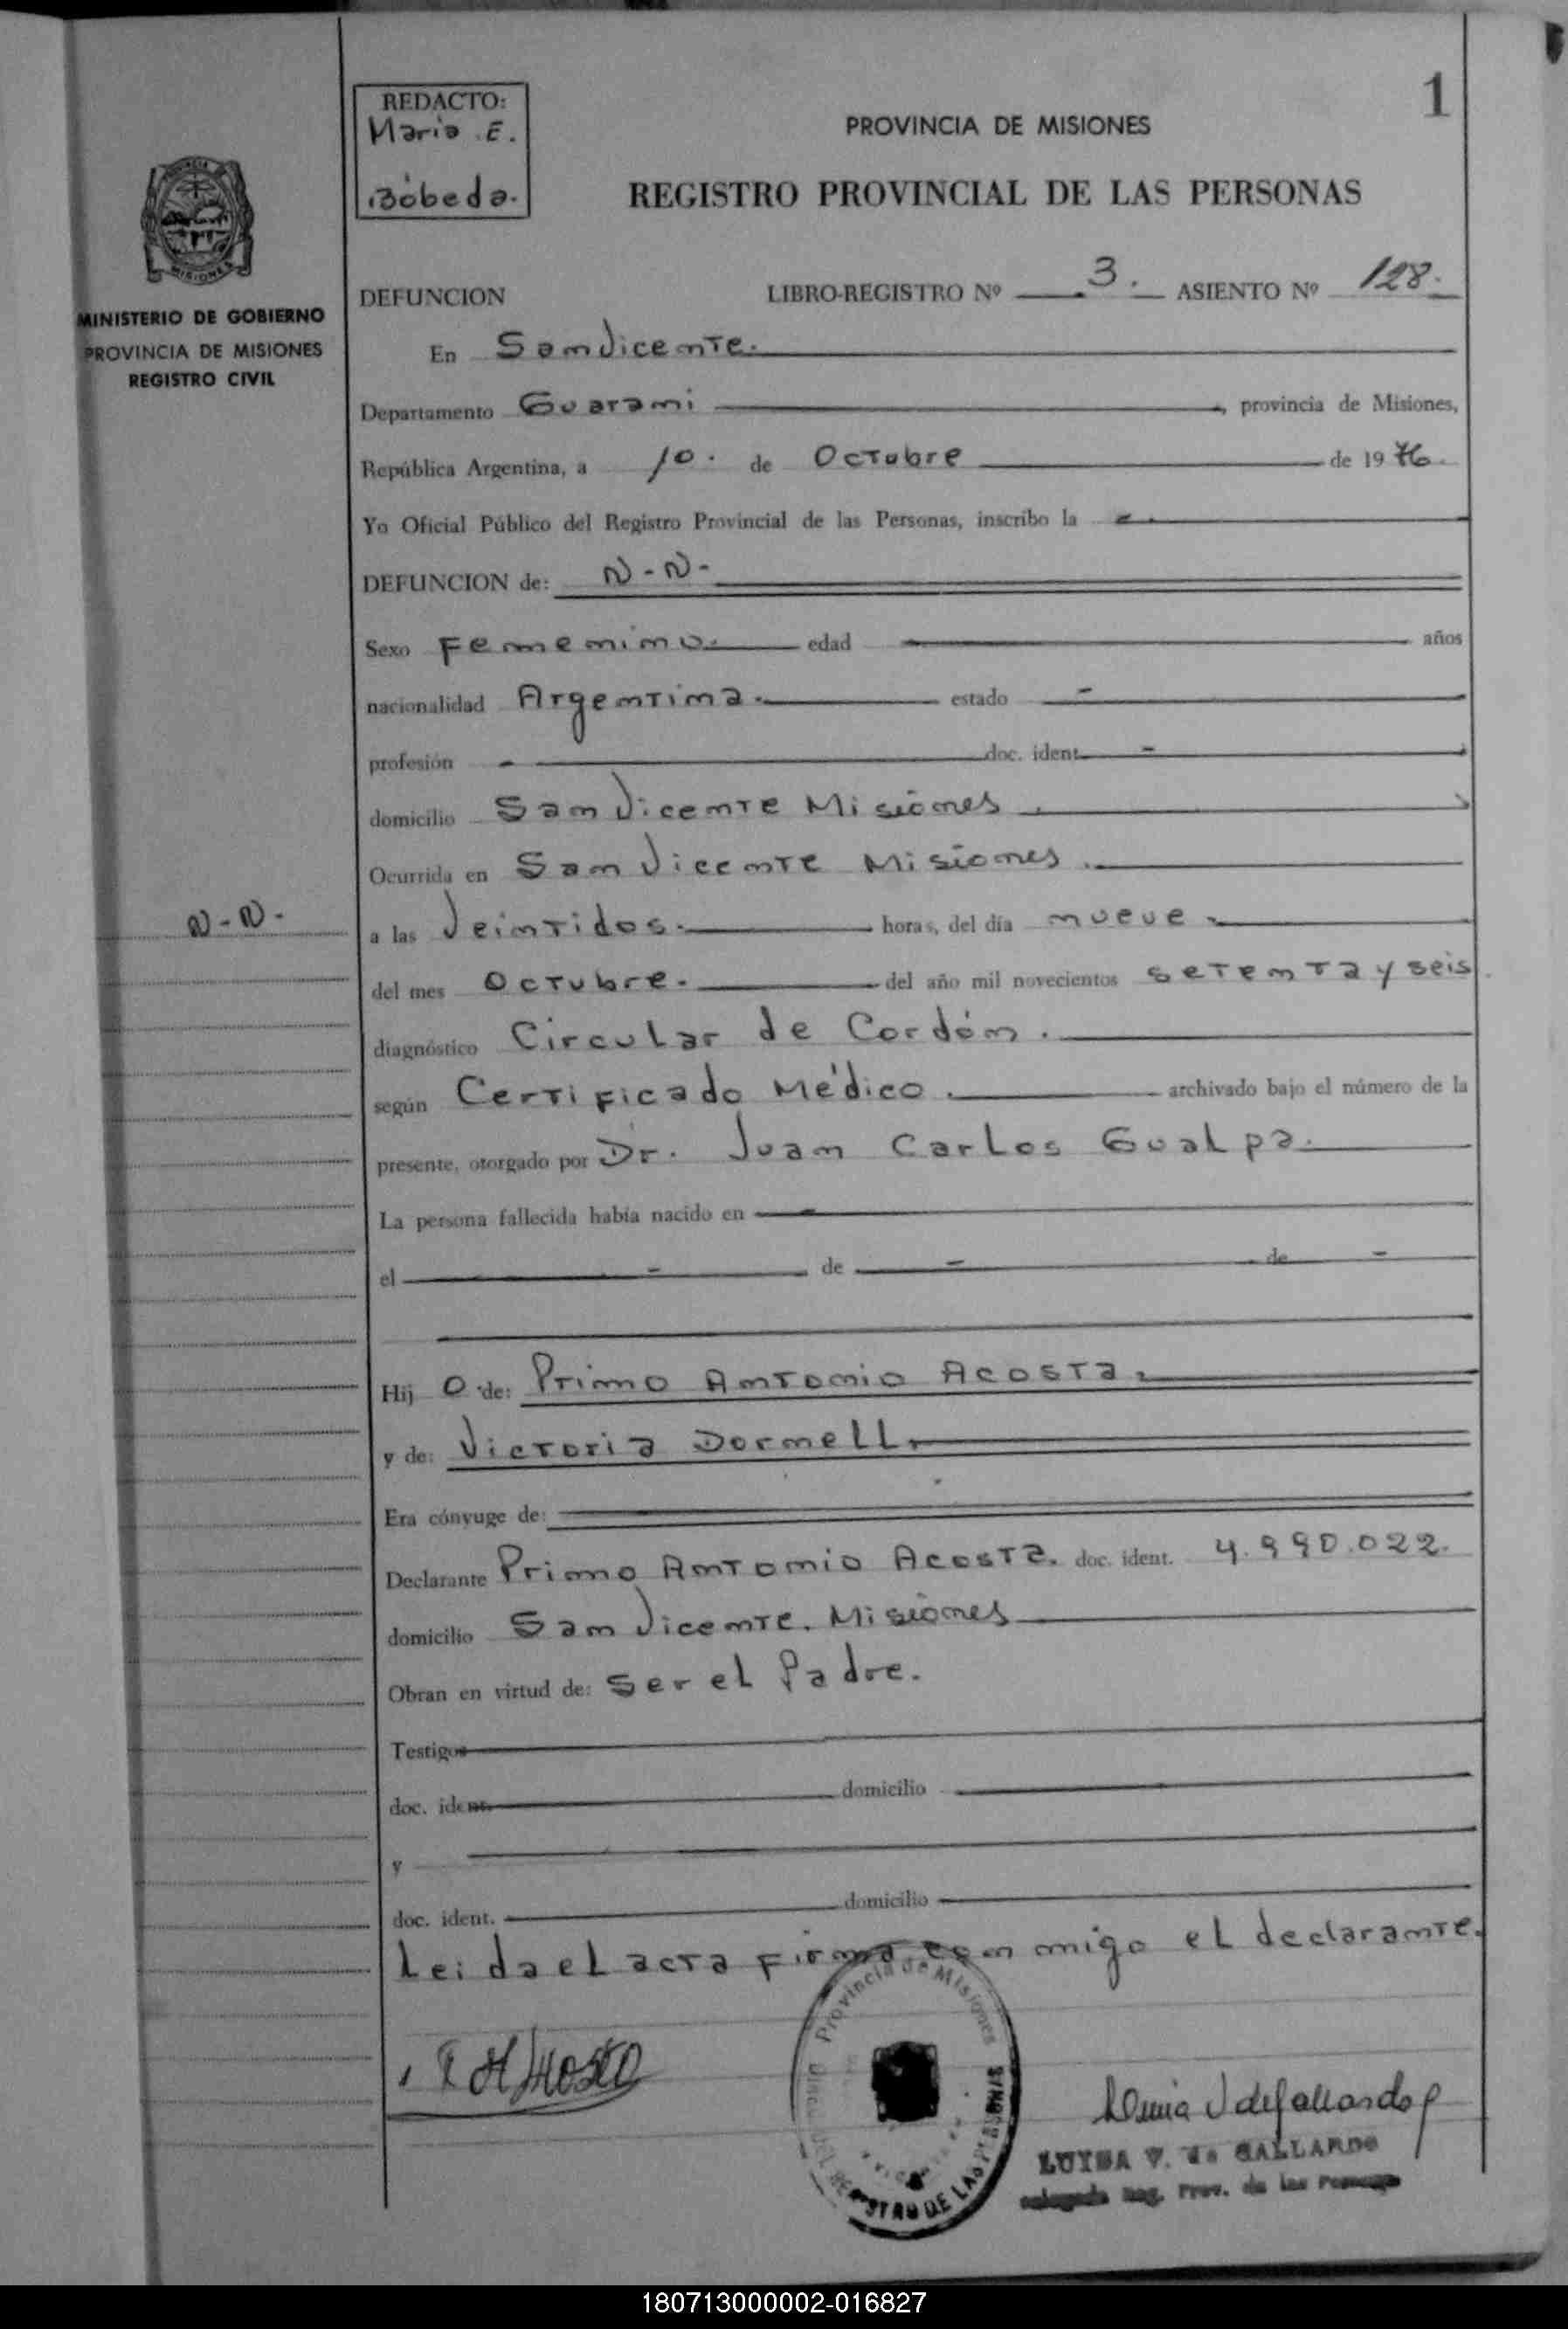 1
REDACTO:
Maria E.
Bóbeda.
PROVINCIA DE MISIONES
REGISTRO PROVINCIAL DE LAS PERSONAS
MISIONES
MINISTERIO DE GOBIERNO
PROVINCIA DE MISIONES
REGISTRO CIVIL
DEFUNCION LIBRO-REGISTRO Nº 3. ASIENTO Nº 128.
En San Vicente.
Departamento Guarani, provincia de Misiones,
República Argentina, a 10. de Octubre de 19 76.
Yo Oficial Público del Registro Provincial de las Personas, inscribo la -.
DEFUNCION de: N-N-
Sexo Femenino. edad años
nacionalidad Argentina. estado -
profesión - doc. ident. -
domicilio San Vicente Misiones.
Ocurrida en San Vicente Misiones.
N-N-
a las Veintidos. horas, del día nueve.
del mes Octubre. del año mil novecientos setenta y seis
diagnóstico Circular de Cordón.
según Certificado Médico. archivado bajo el número de la
presente, otorgado por Dr. Juan Carlos Gualpa.
La persona fallecida había nacido en -
el - de - de -
Hij o de: Primo Antonio Acosta.
y de: Victoria Dornell.
Era cónyuge de:
Declarante Primo Antonio Acosta. doc. ident. 4.990.022.
domicilio San Vicente. Misiones
Obran en virtud de: Ser el Padre.
Testigos
doc. ident. domicilio
y
doc. ident. domicilio
Leida el acta firma conmigo el declarante.
Provincia de Misiones
REGISTRO DE LAS PERSONAS
LUISA V. de GALLARDO
Delegada Reg. Prov. de las Personas
180713000002-016827